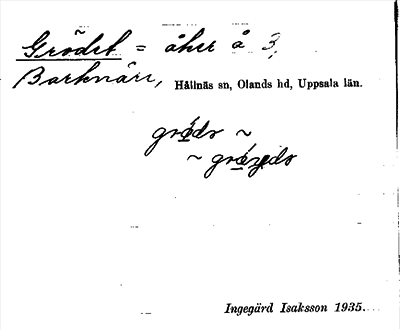 Grödet = åker å 3,
Barknåre, Hållnäs sn, Olands hd, Uppsala län.
Ingegärd Isaksson 1935.